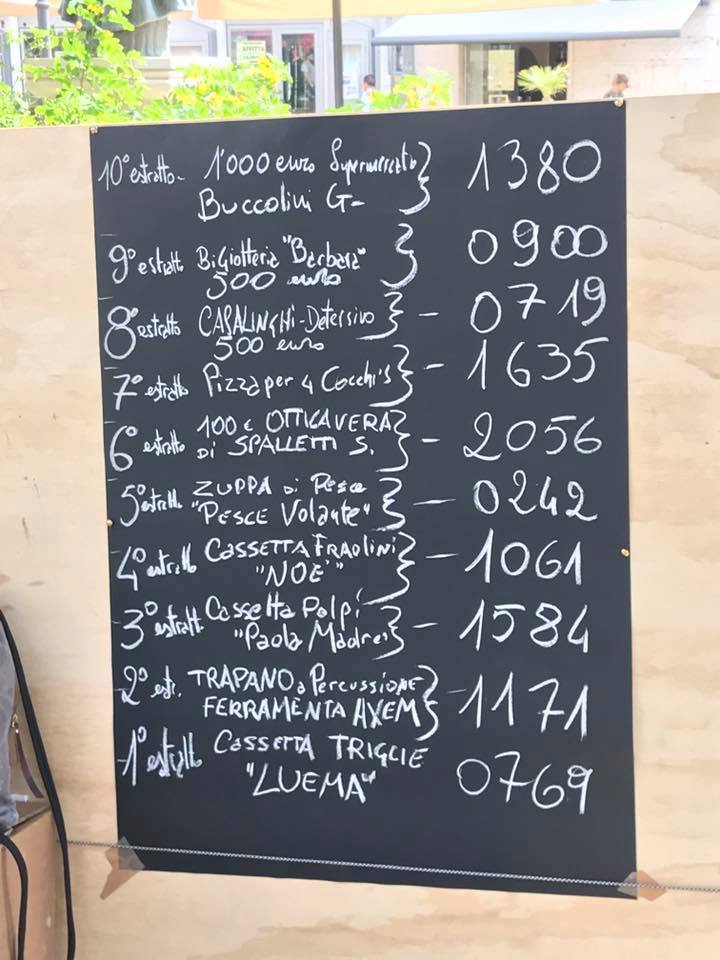 10° estratto- 1'000 euro Supermercato } 1380
Buccolini G-
9° estratto BiGiotteria "Barbara" } 0900
500 euro
8° estratto CASALINGHi-Detersivo } - 0719
500 euro
7° estratto Pizza per 4 Cocchi's } - 1635
6° estratto 100 € OTTICA VERA } - 2056
Di SPALLETTI S.
5° estratto ZUPPA Di Pesce } - 0242
"PESCE Volante"
4° estratto CASSETTA FRAOLINI } - 1061
"NOE'"
3° estratt. Cassetta Polpi } - 1584
"Paola Madre"
2° estr. TRAPANO a Percussione } - 1171
FERRAMENTA AXEM
1° estratto CASSETTA TRIGLIE 0769
"LUEMA"
AFFITTA